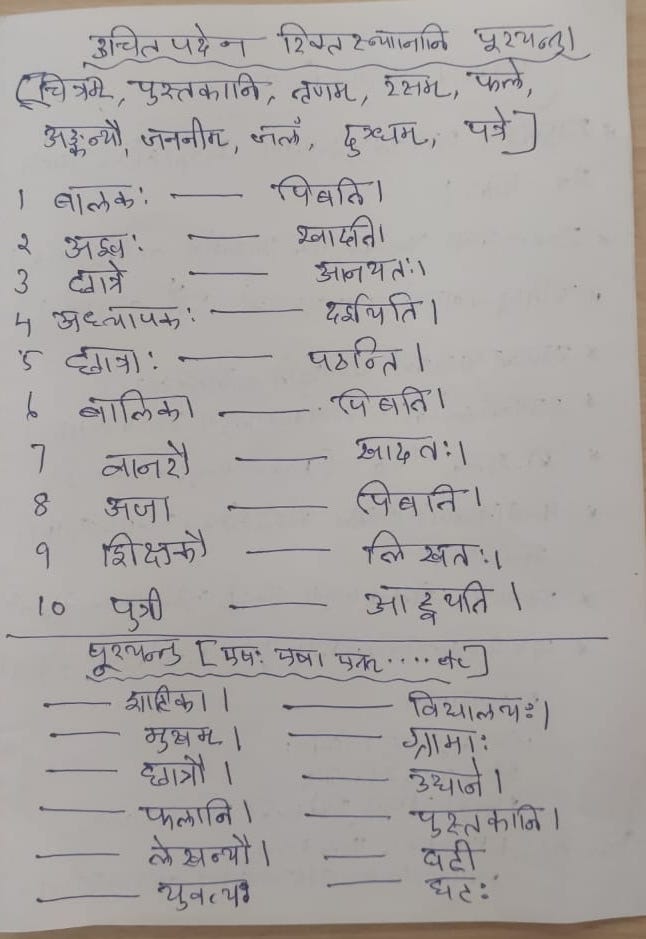 उचित पदेन रिक्तस्थानानि पूरयन्तु।
[चित्रम्, पुस्तकानि, तृणम्, रसम्, फले,
अङ्कन्यौ, जननीम्, जलं, दुग्धम्, पत्रे]
1 बालकः —— पिबति।
२ अश्वः —— खादति।
3 छात्रे —— आनयतः।
4 अध्यापकः —— दर्शयति।
5 छात्राः —— पठन्ति।
6 बालिका —— पिबति।
7 वानरौ —— खादतः।
8 अजा —— पिबति।
9 शिक्षकौ —— लिखतः।
10 पुत्री —— आह्वयति।
पूरयन्तु [एषः एषा एतत् .... etc]
—— शाटिका। —— विद्यालयः।
—— मुखम्। —— ग्रामाः
—— छात्रौ। —— उद्याने।
—— फलानि। —— पुस्तकानि।
—— लेखन्यौ। —— घटी
—— युवत्यः —— घटः